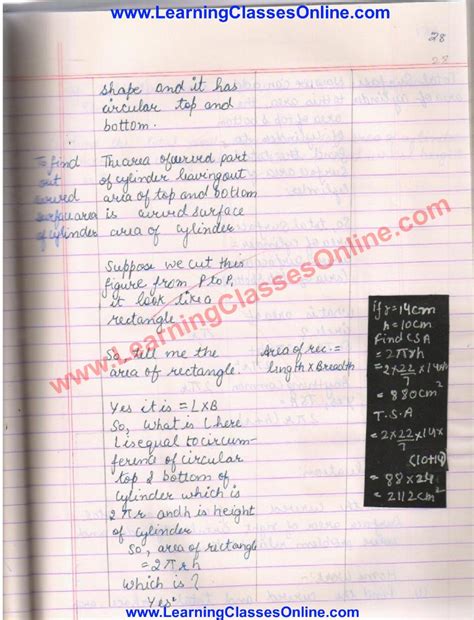 www.LearningClassesOnline.com
28
shape and it has
circular top and
bottom.
To find
out
curved
surface area
of cylinder
The area of curved part
of cylinder leaving out
area of top and bottom
is curved surface
area of cylinder
Suppose we cut this
figure from P to P,
it look like a
rectangle
So, tell me the
area of rectangle.
Area of rec. =
length X Breadth
Yes it is = L X B
So, What is L here
L is equal to circum-
ference of circular
top & bottom of
cylinder which is
2πr and h is height
of cylinder
So, area of rectangle
= 2πrh
which is?
Yes
if r = 14cm
h = 10cm
Find CSA
= 2πrh
= 2 x 22/7 x 14x10
= 880 cm²
T.S.A
= 2 x 22/7 x 14 x
(10+14)
= 88 x 24
= 2112 cm²
www.LearningClassesOnline.com
www.LearningClassesOnline.com